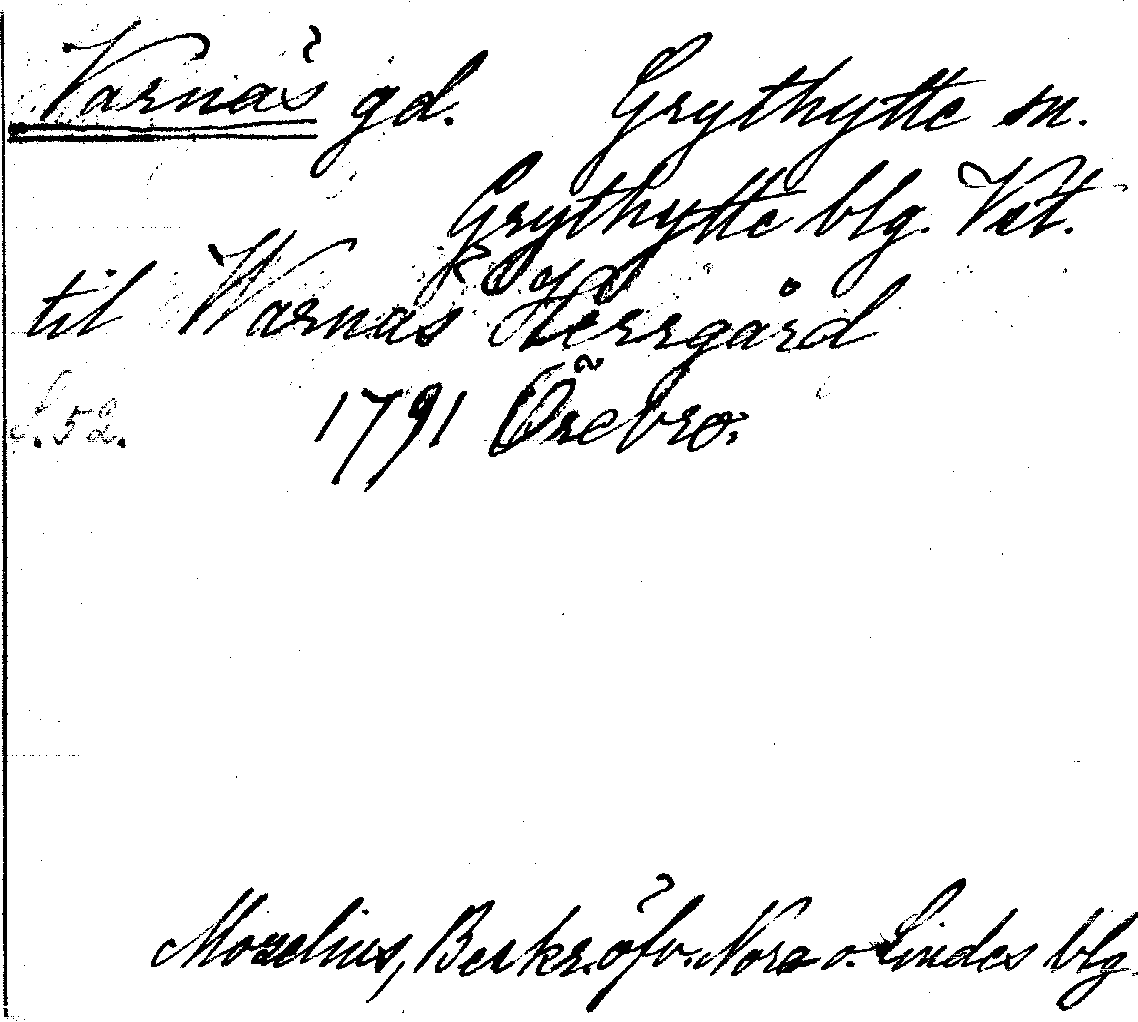 Varnäs gd. Grythytte sn.
Grythytte blg. Vst.
til Warnäs Herrgård
s. 52. 1791 Örebro.
Morelius, Beskr. öfv. Nora o. Lindes blg.